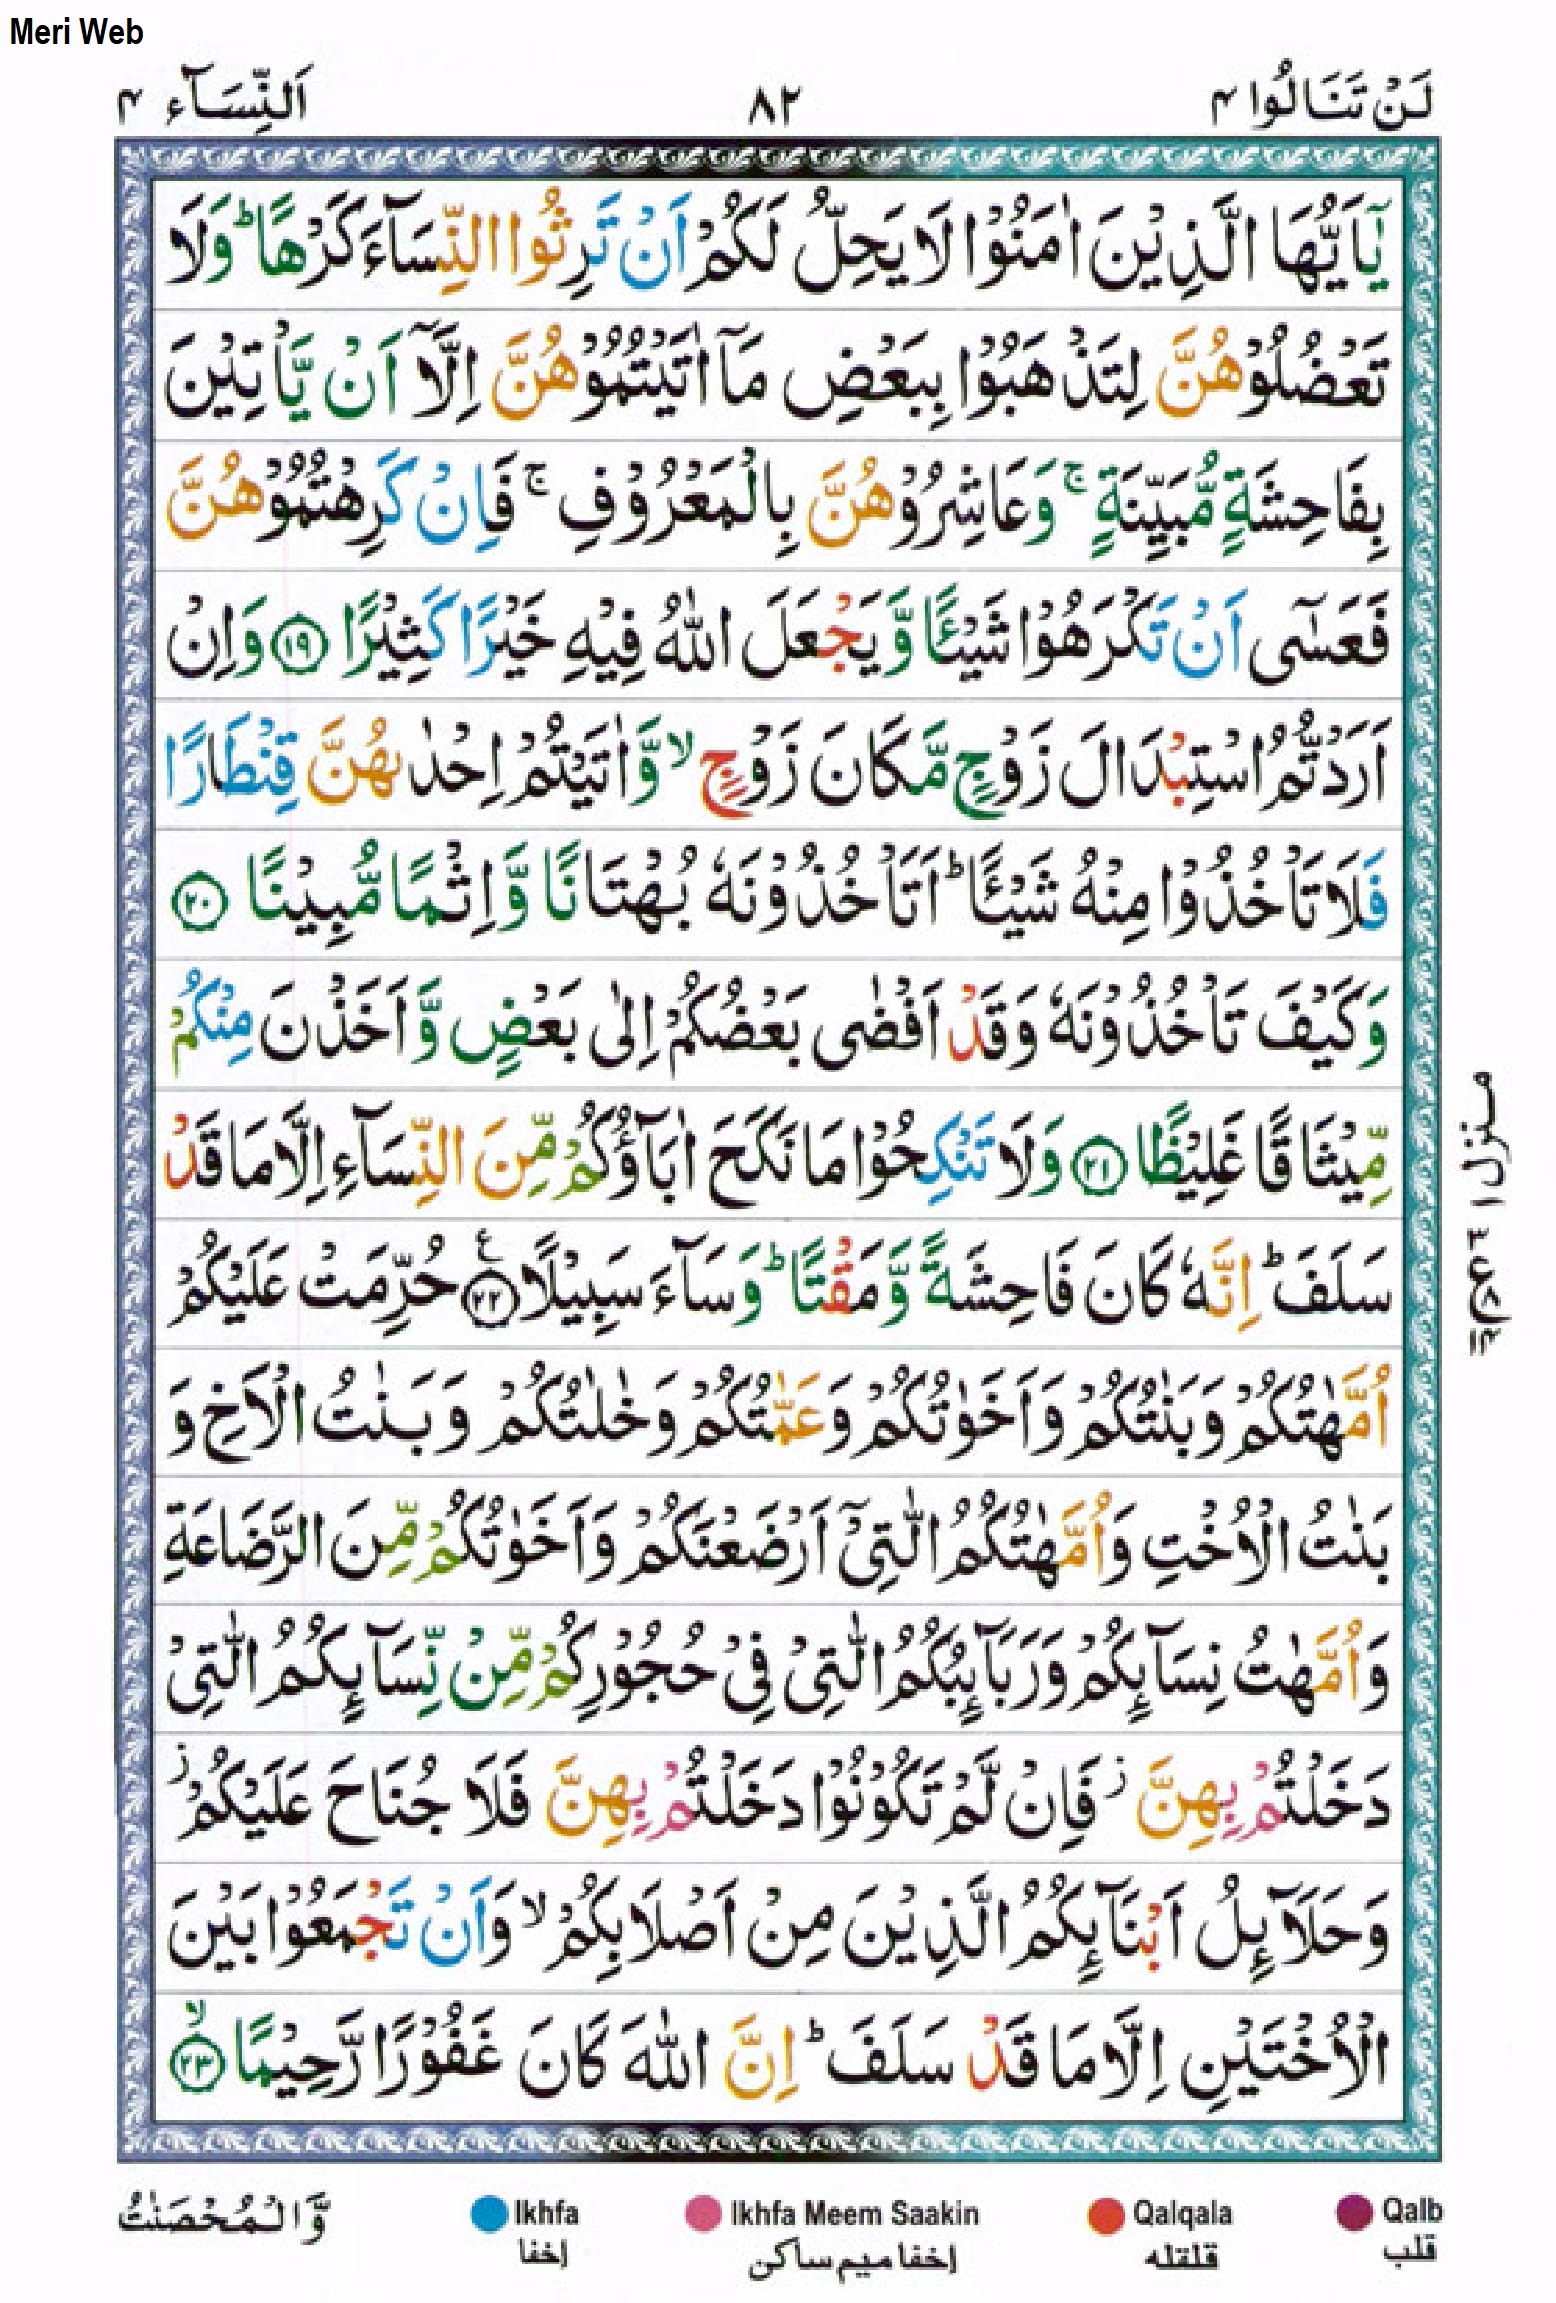 Meri Web
لَنْ تَنَالُوا ٤ ٨٢ اَلنِّسَآء ٤
يٰٓاَيُّهَا الَّذِيْنَ اٰمَنُوْا لَا يَحِلُّ لَكُمْ اَنْ تَرِثُوا النِّسَآءَ كَرْهًا ؕ وَلَا
تَعْضُلُوْهُنَّ لِتَذْهَبُوْا بِبَعْضِ مَآ اٰتَيْتُمُوْهُنَّ اِلَّآ اَنْ يَّاْتِيْنَ
بِفَاحِشَةٍ مُّبَيِّنَةٍ ۚ وَعَاشِرُوْهُنَّ بِالْمَعْرُوْفِ ۚ فَاِنْ كَرِهْتُمُوْهُنَّ
فَعَسٰٓى اَنْ تَكْرَهُوْا شَيْـًٔا وَّيَجْعَلَ اللّٰهُ فِيْهِ خَيْرًا كَثِيْرًا ۝١٩ وَاِنْ
اَرَدْتُّمُ اسْتِبْدَالَ زَوْجٍ مَّكَانَ زَوْجٍ ۙ وَّاٰتَيْتُمْ اِحْدٰىهُنَّ قِنْطَارًا
فَلَا تَاْخُذُوْا مِنْهُ شَيْـًٔا ؕ اَتَاْخُذُوْنَهٗ بُهْتَانًا وَّاِثْمًا مُّبِيْنًا ۝٢٠
وَكَيْفَ تَاْخُذُوْنَهٗ وَقَدْ اَفْضٰى بَعْضُكُمْ اِلٰى بَعْضٍ وَّاَخَذْنَ مِنْكُمْ
مِّيْثَاقًا غَلِيْظًا ۝٢١ وَلَا تَنْكِحُوْا مَا نَكَحَ اٰبَآؤُكُمْ مِّنَ النِّسَآءِ اِلَّا مَا قَدْ
سَلَفَ ؕ اِنَّهٗ كَانَ فَاحِشَةً وَّمَقْتًا ؕ وَسَآءَ سَبِيْلًا ۝٢٢ ع حُرِّمَتْ عَلَيْكُمْ
اُمَّهٰتُكُمْ وَبَنٰتُكُمْ وَاَخَوٰتُكُمْ وَعَمّٰتُكُمْ وَخٰلٰتُكُمْ وَبَنٰتُ الْاَخِ وَ
بَنٰتُ الْاُخْتِ وَاُمَّهٰتُكُمُ الّٰتِيْٓ اَرْضَعْنَكُمْ وَاَخَوٰتُكُمْ مِّنَ الرَّضَاعَةِ
وَاُمَّهٰتُ نِسَآىِٕكُمْ وَرَبَآىِٕبُكُمُ الّٰتِيْ فِيْ حُجُوْرِكُمْ مِّنْ نِّسَآىِٕكُمُ الّٰتِيْ
دَخَلْتُمْ بِهِنَّ ز فَاِنْ لَّمْ تَكُوْنُوْا دَخَلْتُمْ بِهِنَّ فَلَا جُنَاحَ عَلَيْكُمْ ز
وَحَلَآىِٕلُ اَبْنَآىِٕكُمُ الَّذِيْنَ مِنْ اَصْلَابِكُمْ ۙ وَاَنْ تَجْمَعُوْا بَيْنَ
الْاُخْتَيْنِ اِلَّا مَا قَدْ سَلَفَ ؕ اِنَّ اللّٰهَ كَانَ غَفُوْرًا رَّحِيْمًا ۙ۝٢٣
منزل ١
وَّالْمُحْصَنٰتُ
Ikhfa Ikhfa Meem Saakin Qalqala Qalb
إخفا إخفا ميم ساكن قلقله قلب